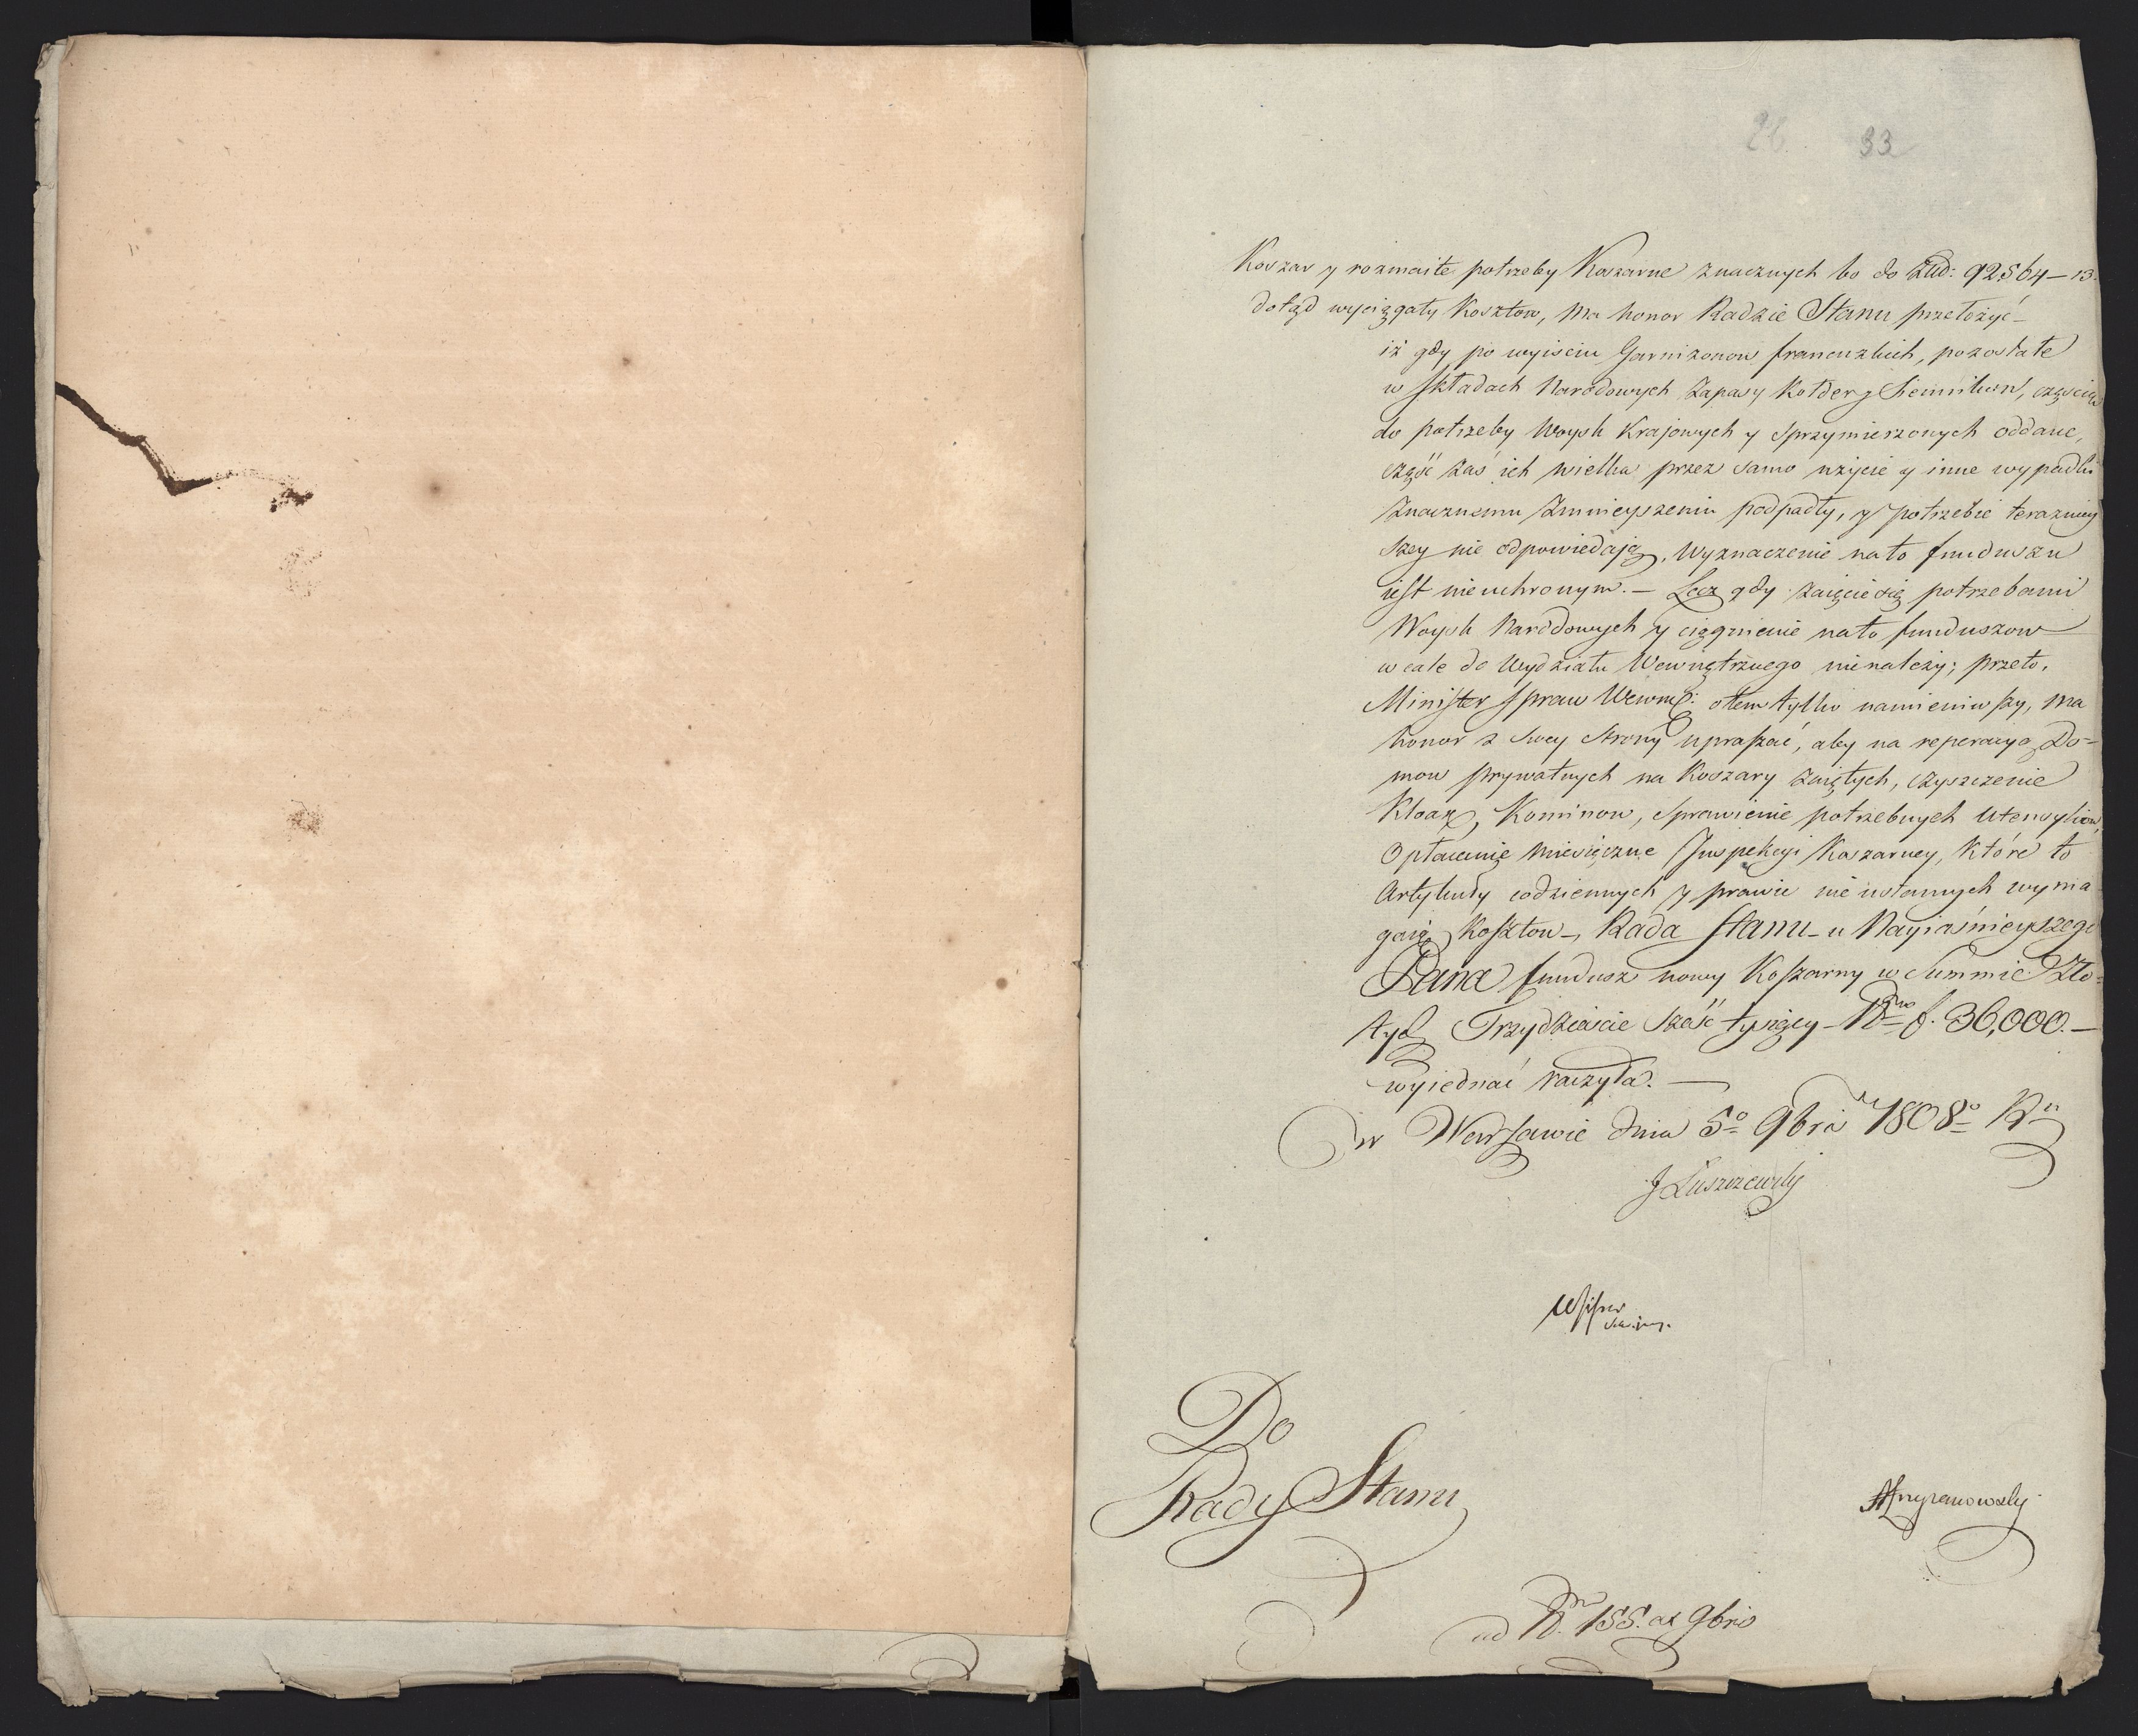 26 33
Koszar y rozmaite potrzeby Koszarne znacznych bo do Złt: 92564–13.
dotąd wyciągały Kosztow, ma honor Radzie Stanu przełożyć –
iż gdy po wyiściu Garnizonow francuzkich, pozostałe
w składach Narodowych zapasy Kołder y Siennikow, częścią
do potrzeby Woysk Krajowych y sprzymierzonych oddane,
część zaś ich wielka przez samo użycie y inne wypadki
znacznemu zmnieyszeniu podpadły, y potrzebie teraźniey
szey nie odpowiedaią, Wyznaczenie na to funduszu
iest nieuchronym. – Lecz gdy zaięcie się potrzebami
Woysk Narodowych y ciągnienie na to funduszow
wcale do Wydziału Wewnętrznego nie należy; przeto,
Minister Spraw Wewnę: o tem tylko namieniwszy, ma
honor z swey strony upraszać, aby na reperacyą Do=
mow prywatnych na Koszary zaiętych, czyszczenie
Kloak, Kominow, sprawienie potrzebnych Utensyliow,
Opłacenie miesięczne Inspekcyi Koszarney, które to
Artykuły codziennych y prawie nieustannych wyma
gaią Kosztow –, Rada Stanu – u Nayiaśnieyszego
Pana fundusz nowy Koszarny w Summie Zło=
tych Trzydzieście sześć tysięcy – Nro f. 36,000. –
wyiednać raczyła. –
w Warszawie dnia 5o 9bra 1808o Rn
J Łuszczewsky
Do
Rady Stanu
ad N. 155. ex 9bris